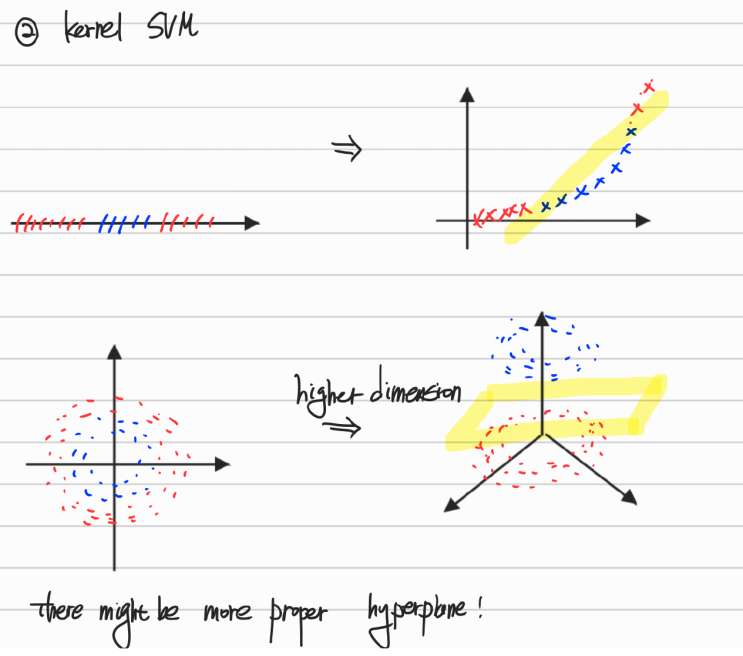 ② kernel SVM
⇒
higher dimension
⇒
There might be more proper hyperplane!